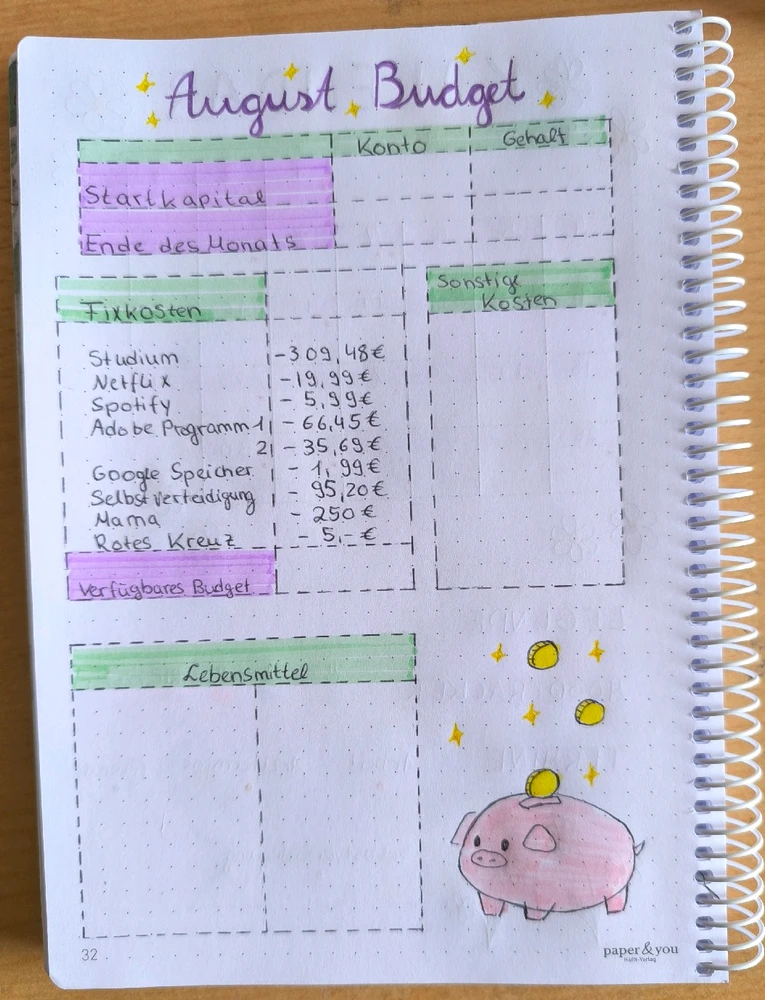 August Budget
Konto Gehalt
Startkapital
Ende des Monats
Fixkosten
Sonstige
Kosten
Studium -309,48€
Netflix -19,99€
Spotify - 5,99€
Adobe Programm 1 - 66,45€
2 - 35,69€
Google Speicher - 1,99€
Selbstverteidigung - 95,20€
Mama - 250€
Rotes Kreuz - 5,-€
Verfügbares Budget
Lebensmittel
32
paper&you